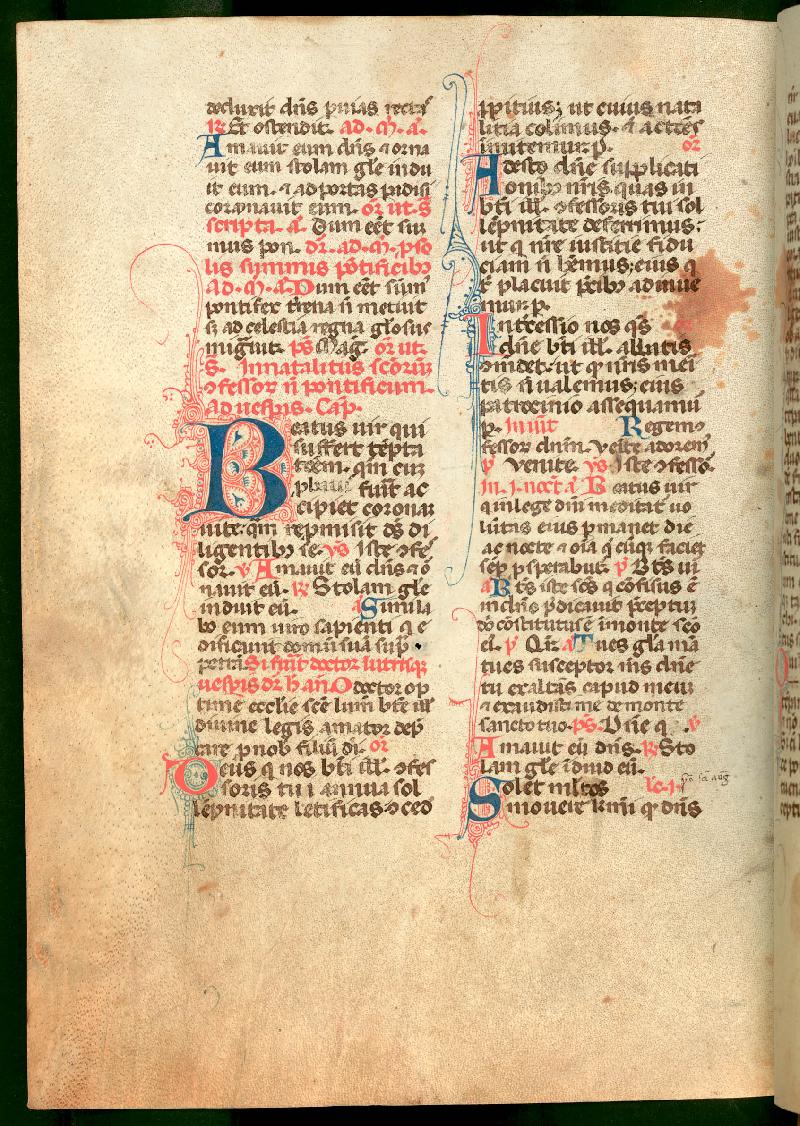 deduxit dn̄s p uias rectaſ
℞. Et oſtendit. ad. m̄. a.
Amauit eum dn̄s ⁊ orna
uit eum ſtolam gl̄e indu
it eum. ⁊ ad portas pͣdiſi
coronauit eum. or̄ ut. S̄
ſcripta. a. Dum eēt ſūm
mus pon. dr̄. ad. m̄. p̄ ſo
lis ſummis pōtificib₉
ad. m̄. a. Dum eēt sūm̄
pontifex t̄rena n̄ metuit
ſ; ad celeſtia regna gl̄oſuſ
migͣuit. p̄s Mag̅. or̄ ut.
S̄. In natalitiis scōrum
ↄfeſſor n̄ pontificum.
ad ueſp̄is. Cap̄.
Beatus uir qui
ſuffert tēpta
tōem. qm̄ cum
pbatꝰ fūit ac
cipiet coronam
uite. qm̄ repmiſit dꝰ di
ligentib₉ ſe. ꝟs Iſte ↄfeſ
ſor. ꝟ Amauit eū dn̄s ⁊ oͬ
nauit eū. ℞ Stolam gl̄e
induit eū. a Simila
bo eum uiro ſapienti q̄ e
dificauit domū ſuā ſupͣ
petrā. Si fūit doctor in utriſq;
ueſp̄is dr̄ h̄ an̄. O doctor op
time eccl̄ie ſcē lum̄ bt̄e ill̄
diuine legis amator dep̄
care p nob filiū di. or̄
Deus q nos bt̄i ill̄. ↄfeſ
ſoris tui annua ſol
lēpnitate letificas. ↄced
ꝓpitius; ut cuius nata
litia colimus. ⁊ actōes
imitemur. p. or̄
Adeſto dn̄e ſupplicati
onib₉ nr̄is. quas in
bt̄i ill̄. ↄfeſſoris tui ſol
lēpnitate deferimus:
ut q̄ nr̄e iuſtitie fidu
ciam n̄ hēmus; eius q̄
t̄ placuit p̄cib₉ adiuue
mur. p.
Intc̄eſſio nos q̄s
dn̄e bt̄i ill̄. abbatis
ↄmēdet. ut q̄ nr̄is mei
tis n̄ ualemus; eius
patrocinio aſſequamur
p. Inuit Regem ↄ
feſſor dnm̄. Venite adorem̄
p̄ Venite. ꝟs Iſte ↄfeſſor.
In. j. noct̄. a Beatus uir
qui in lege dn̄i meditat̄ uo
lūtas eius pmanet die
ac nocte ⁊ oīa q̄cūq; faciet
ſep̄ pſperabūt. p̄ Bt̄s ui
a Bt̄s iſte ſcs̄ q ↄfiſus ē
in dn̄o p̄dicauit p̄ceptum
dō cōſtitutꝰ ē i monte ſcō
ei. p̄ Qͣr. a Tu es gl̄a mͣ
tu es ſuſceptor mꝰ dn̄e
tu exaltas capud meū
⁊ exaudiſti me de monte
ſancto tuo. p̄s. Dn̄e q. ꝟ
Amauit eū dn̄s. ℞ Sto
lam gl̄e īduīt eū.
Solet mltos le. j.
mouere km̄i qͣ dn̄s